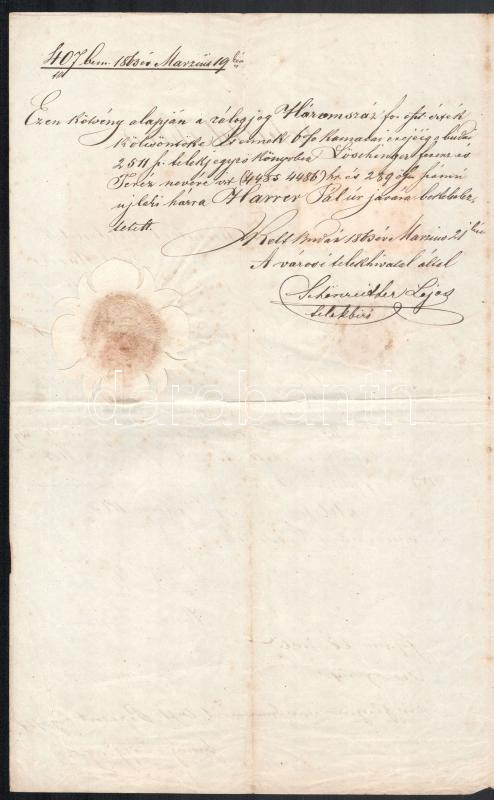 407 bem. 1863 év Marzius 19 kén
tk
Ezen kötvény alapján a zálogjog Háromszáz for. oszt. érték
kölcsöntőke s ennek 6% kamatai erejéig a budai
2511 p. telekjegyzőkönyvben Löschinger ferenc és
Teréz nevére irt (4485 4486) hr. és 289 öi számú
ujlaki házra Harrer Pál úr javára bekebelez-
tetett.
Kelt Budán 1863 évi Marzius 21 kén
A városi telekhivatal által
Schönreither Lajos
telekbiró
darabanth